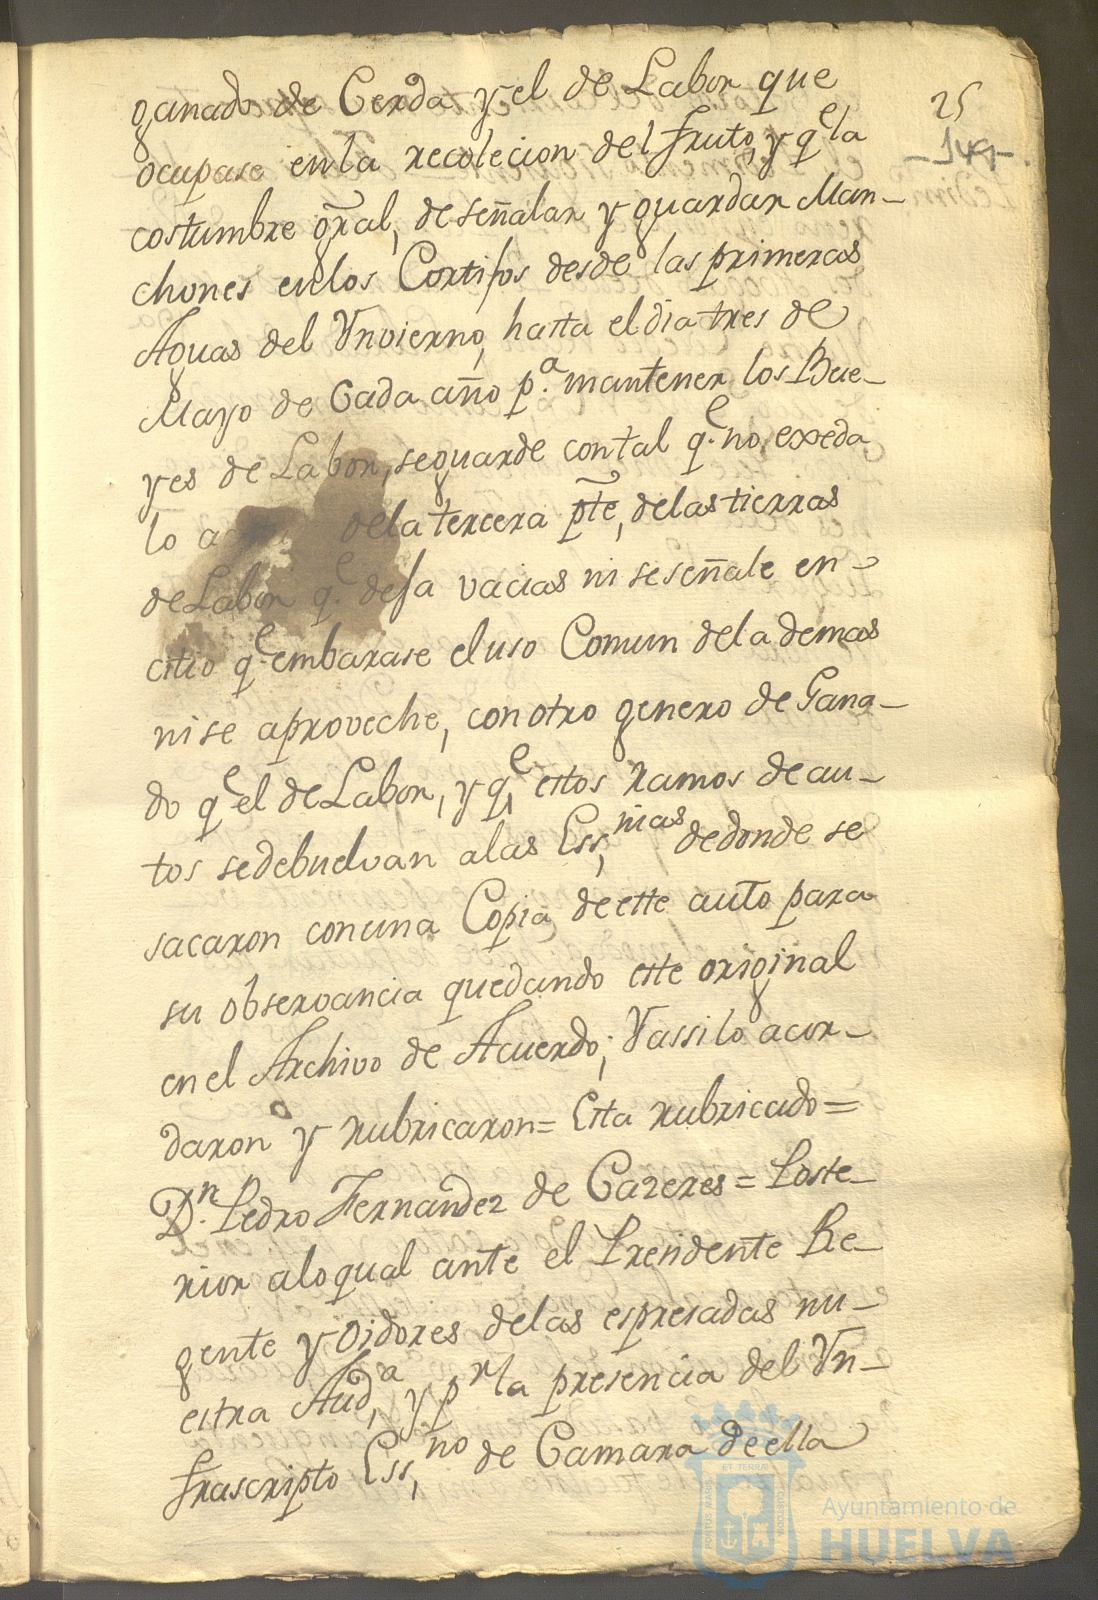 25
149
ganado de Cerda y el de Labor que
ocupase en la recolecion del fruto, y qe la
costumbre gral, de señalar y guardar Man-
chones en los Cortijos desde las primeras
Aguas del Ynvierno, hasta el dia tres de
Mayo de Cada año p.a mantener los Bue-
yes de Labor, se guarde con tal q.e no exeda
lo de la tercera pte, de las tierras
de Labor q.e deja vacias ni se señale en
citio q.e embarase el uso Comun de la demas
ni se aproveche, con otro genero de Gana-
do qe el de Labor, y qe estos Ramos de au-
tos se debuelvan a las Essnias de donde se
sacaron con una Copia de este auto para
su observancia quedando este original
en el Archivo de Acuerdo; Y assi lo acor-
daron y rubricaron = Esta rubricado =
D.n Pedro Fernandez de Cazeres = Poste-
rior alo qual ante el Presidente Re-
gente y Oidores de las espresadas nu-
estra Auda, y pr la presencia del Yn-
frascripto Essno de Camara de ella
PORTUS MARIS ET TERRÆ CUSTODIA
Ayuntamiento de
HUELVA